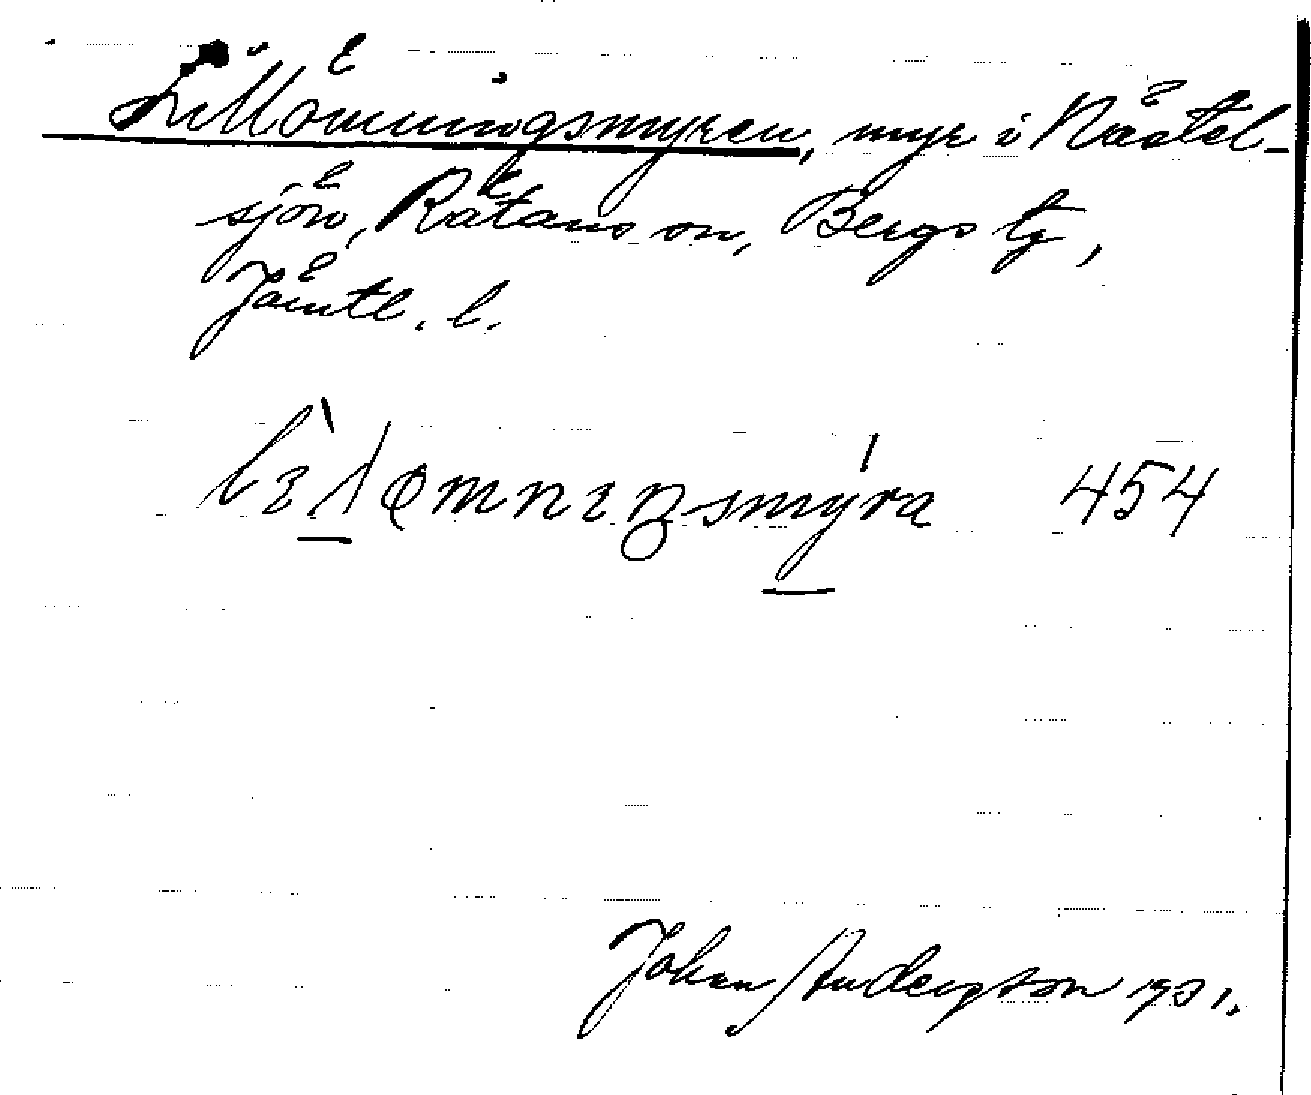 Lillömningsmyren, myr i Nästel-
sjön, Rätans sn, Bergs tg,
Jämtl. l.
454
Johan Anderson 1931.